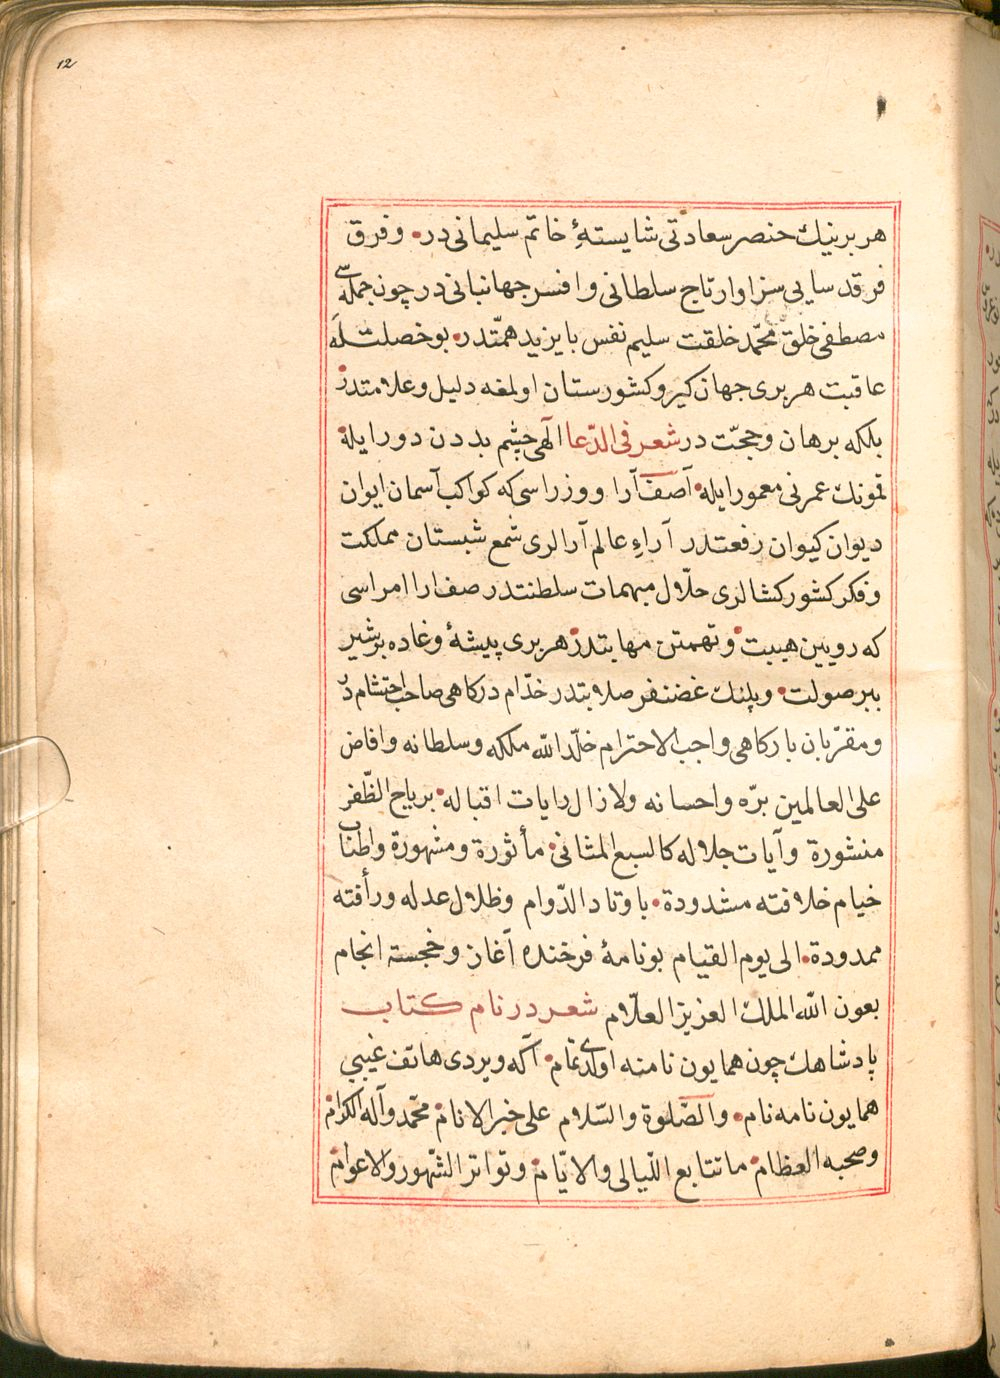 12
هر برینیك خنصر سعادتی شایستۀ خاتم سلیمانی در • وفرق
فرقد سایی سزاوار تاج سلطانی وافسر جهانبانی در چون جمله‌سی
مصطفی خلق محمّد خلقت سلیم نفس بایزید همّتدر • بوخصلتله
عاقبت هر بری جهان کیر وکشورستان اولمغه دلیل وعلامتدر •
بلکه برهان وحجّت در شعر فی الدّعا الٓهی چشم بددن دور ایله •
قمونك عمرنی معمور ایله • آصف آرا ووزراسی که کواکب آسمان ایوان
دیوان کیوان رفعتدر آراء عالم آرالری شمع شبستان مملکت
وفکر کشور کشالری حلّال مبهمات سلطنتدر صف ارا امراسی
که رویین هیبت • وتهمتن مهابتدر • هر بری پیشۀ وغاده بر شیر
ببر صولت • وپلنك غضنفر صلابتدر خدّام درکاهی صاحب احتشام در
ومقرّبان بارکاهی واجب الاحترام خلّد الله ملکه وسلطانه وافاض
علی العالمین برّه واحسانه ولا زال رایات اقباله • بریاح الظّفر
منشورة وآیات جلاله کالسبع المثانی • مأثورة ومشهورة واطناب
خیام خلافته مشدودة • باوتاد الدّوام وظلال عدله ورأفته
ممدودة • الی یوم القیام بونامۀ فرخنده آغاز وخجسته انجام
بعون الله الملك العزیز العلّام شعر در نام کتاب
پادشاهك چون همایون نامنه اولدی تمام • آکه ویردی هاتف غیبی
همایون نامه نام • والصّلوة والسّلام علی خیر الانام • محمّد وآله الکرام •
وصحبه العظام • ما تتابع اللّیالی والایّام • وتواتر الشّهور والاعوام •